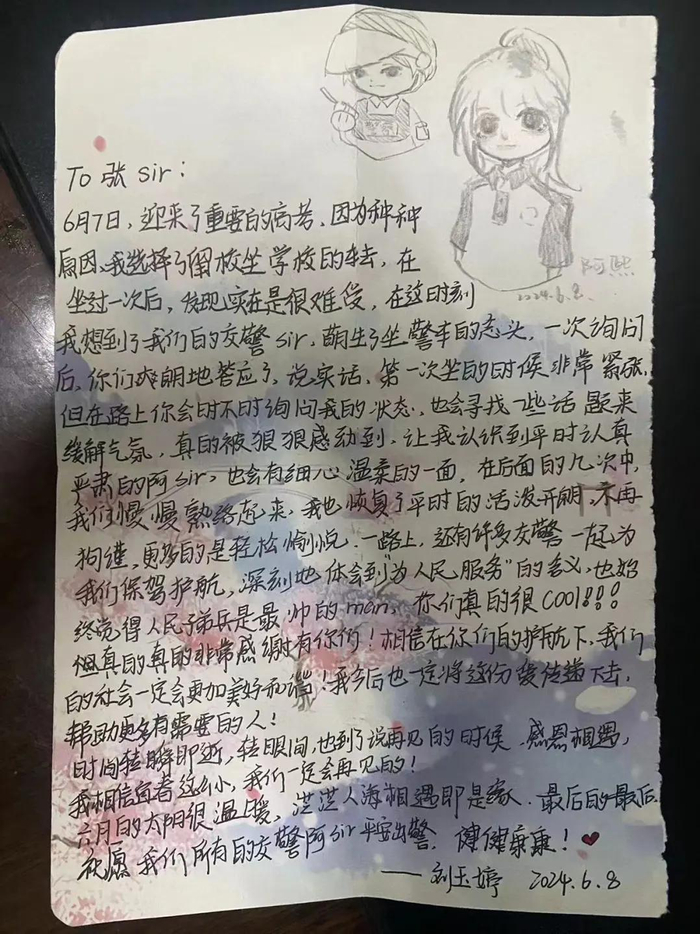 To 张 sir：
6月7日，迎来了重要的高考，因为种种
原因，我选择了留校坐学校的车去，在
坐过一次后，发现实在是很难受，在这时刻
我想到了我们的交警 sir，萌生了坐警车的念头，一次询问
后，你们爽朗地答应了，说实话，第一次坐的时候非常紧张，
但在路上你会时不时询问我的状态，也会寻找一些话题来
缓解气氛，真的被狠狠感动到，让我认识到平时认真
严肃的阿sir，也会有细心温柔的一面，在后面的几次中，
我们慢慢熟络起来，我也恢复了平时的活泼开朗，不再
拘谨，更多的是轻松愉悦．一路上，还有许多交警一起为
我们保驾护航，深刻地体会到“为人民服务”的含义，也始
终觉得人民子弟兵是最帅的man，你们真的很COOl!!!
真的真的非常感谢有你们！相信在你们的护航下，我们
的社会一定会更加美好和谐！我今后也一定将这份爱传递下去，
帮助更多有需要的人！
时间转瞬即逝，转眼间，也到了说再见的时候．感恩相遇，
我相信宜春这么小，我们一定会再见的！
六月的太阳很温暖，茫茫人海相遇即是缘．最后的最后
祝愿我们所有的交警阿sir平安出警，健健康康！
——刘玉婷 2024.6.8
阿熙
2024.6.8.